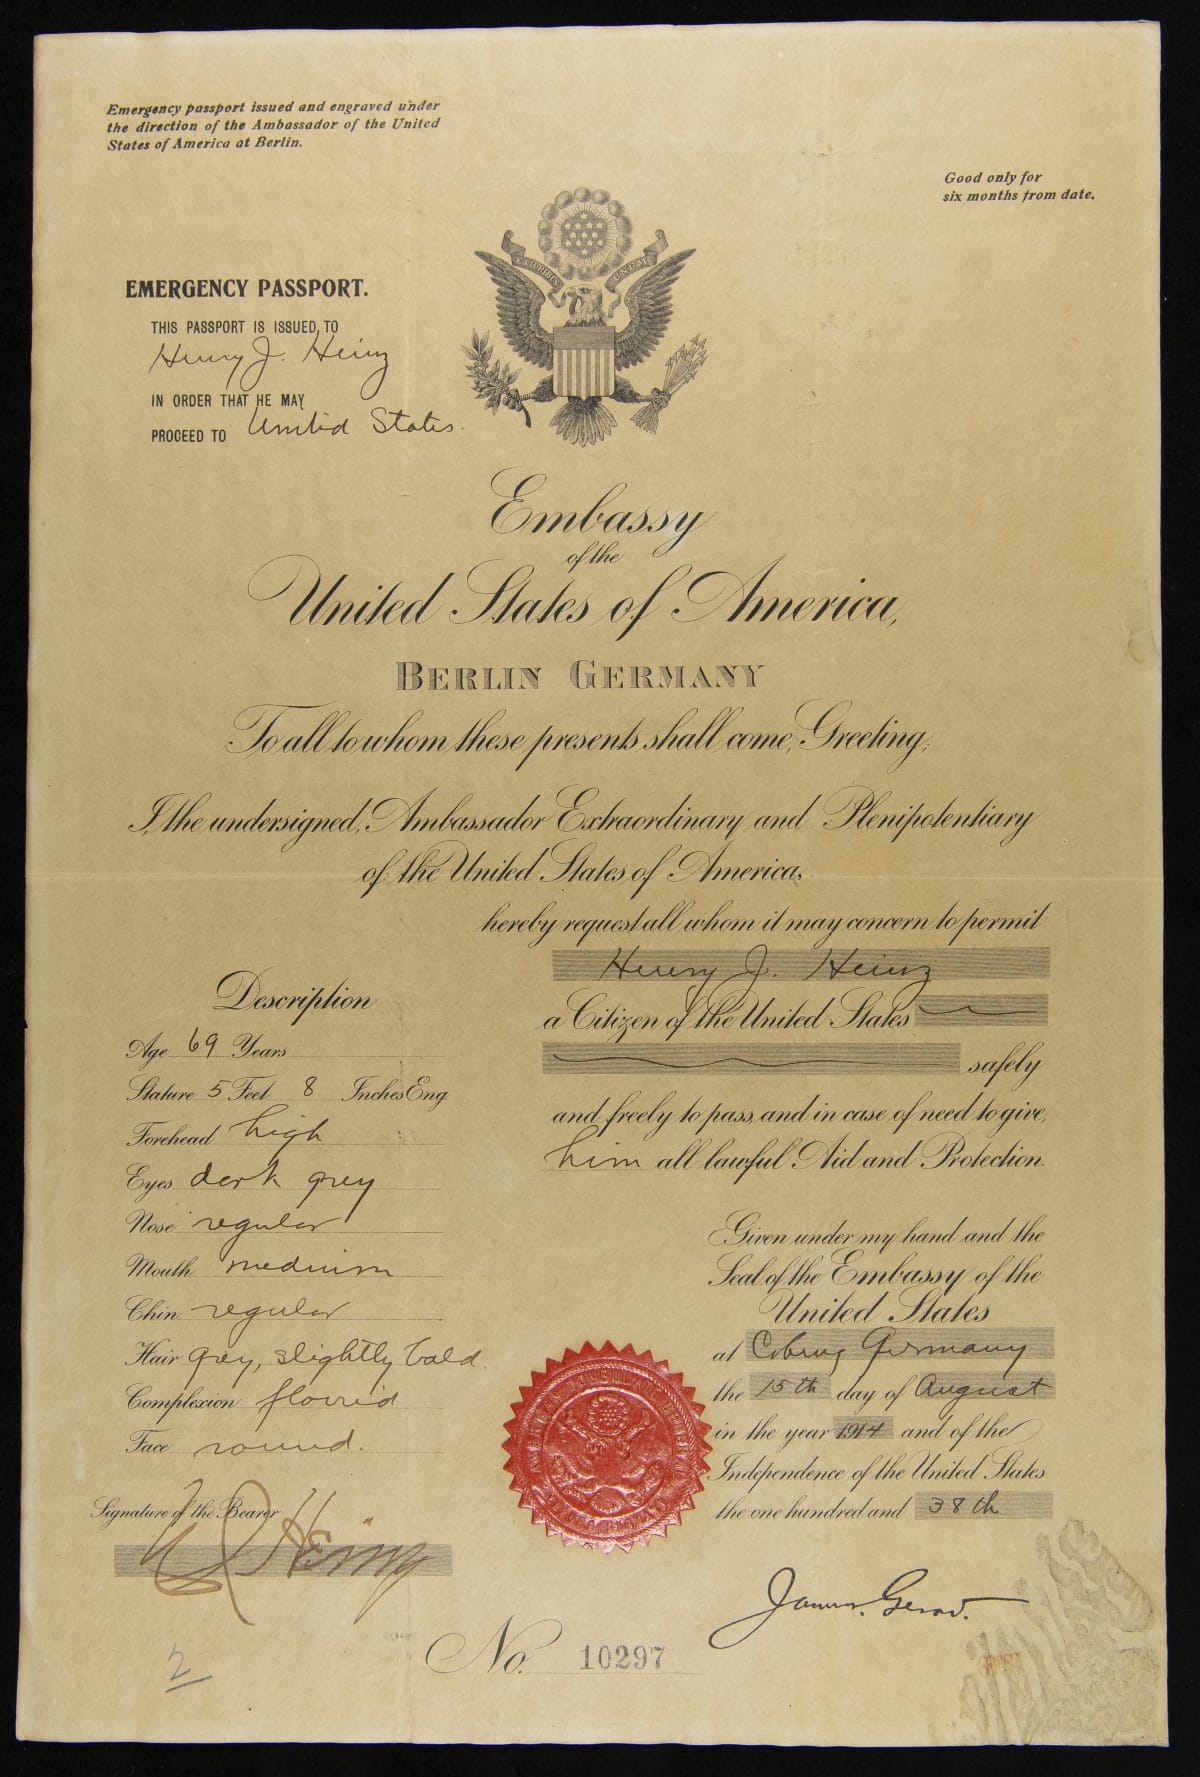 Emergency passport issued and engraved under
the direction of the Ambassador of the United
States of America at Berlin.
Good only for
six months from date.
E PLURIBUS UNUM
EMERGENCY PASSPORT.
THIS PASSPORT IS ISSUED TO
Henry J. Heinz
IN ORDER THAT HE MAY
PROCEED TO United States.
Embassy
of the
United States of America,
BERLIN GERMANY
To all to whom these presents shall come, Greeting;
I, the undersigned, Ambassador Extraordinary and Plenipotentiary
of the United States of America,
hereby request all whom it may concern to permit
Henry J. Heinz
a Citizen of the United States
safely
and freely to pass, and in case of need to give,
him all lawful Aid and Protection.
Description
Age 69 Years
Stature 5 Feet 8 Inches Eng
Forehead high
Eyes dark grey
Nose regular
Mouth medium
Chin regular
Hair grey, slightly bald.
Complexion florrid
Face round.
Signature of the Bearer
HJ Heinz
Given under my hand and the
Seal of the Embassy of the
United States
at Coburg Germany
the 15th day of August
in the year 1914 and of the
Independence of the United States
the one hundred and 38th
AMERICAN CONSULATE GENERAL
James. Gerard.
No. 10297
2